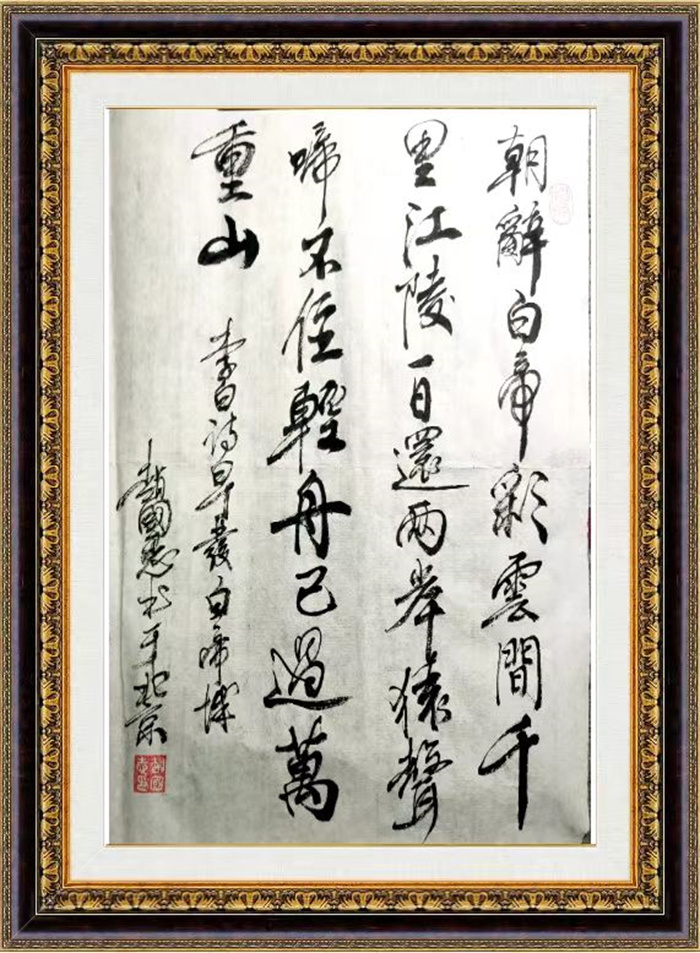 朝辭白帝彩雲間千
里江陵一日還两岸猿聲
啼不住輕舟已過萬
重山
李白詩早發白帝城
國书于北京